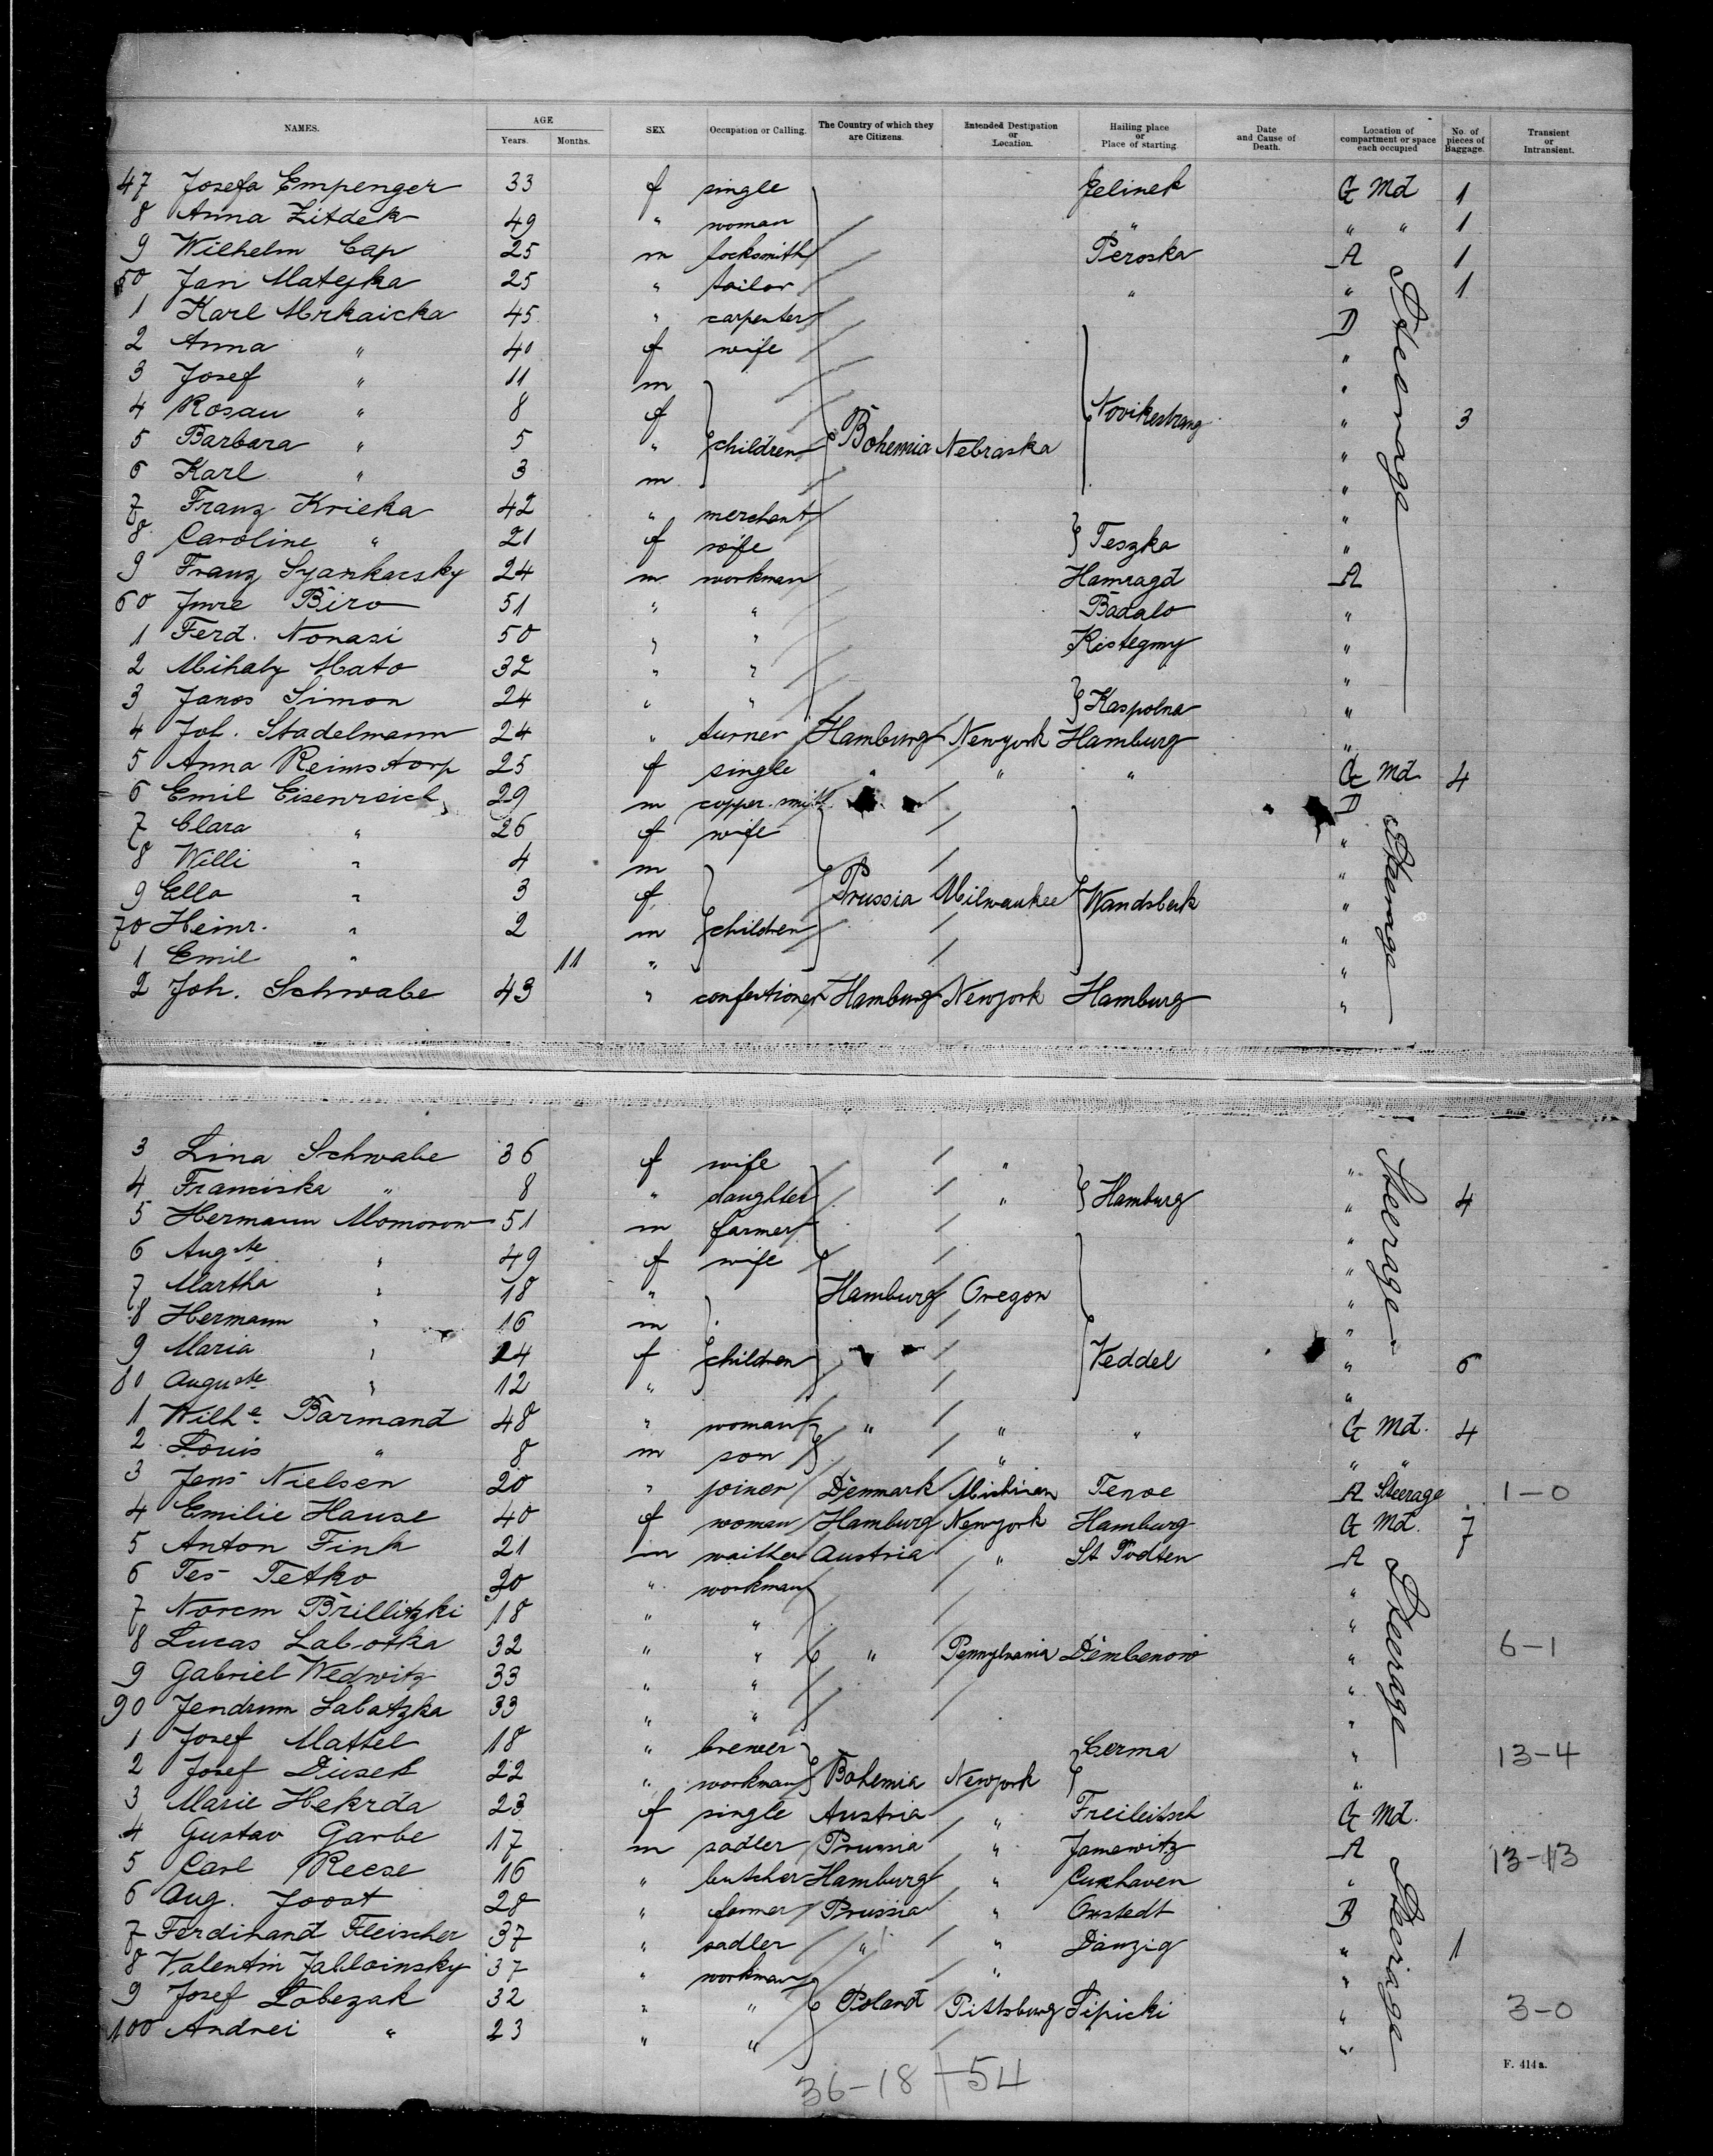 NAMES. AGE Years. Months. SEX Occupation or Calling. The Country of which they are Citizens. Intended Destination or Location. Hailing place or Place of starting. Date and Cause of Death. Location of compartment or space each occupied No. of pieces of Baggage. Transient or Intransient.
47 Josefa Empenger 33 f single Jelinek G Md 1
8 Anna Zitdek 49 " woman " " " 1
9 Wilhelm Cap 25 m locksmith Peroska A 1
50 Jan Matejka 25 " tailor " " 1
1 Karl Mrkaicka 45 " carpenter D Steerage
2 Anna " 40 f wife "
3 Josef " 11 m "
4 Rosau " 8 f Novikestrang " 3
5 Barbara " 5 " children Bohemia Nebraska "
6 Karl " 3 m "
7 Franz Kricka 42 " merchant "
8 Caroline " 21 f wife Teszka "
9 Franz Syankarsky 24 m workman Hamragd A
60 Imre Biro 51 " " Badalo "
1 Ferd. Nonasi 50 " " Kistegmy "
2 Mihaly Mato 32 " " "
3 Janos Simon 24 " " Kaspolna "
4 Joh. Stadelmann 24 " turner Hamburg Newyork Hamburg "
5 Anna Reimstorp 25 f single " " " G Md 4
6 Emil Eisenreich 29 m copper.smith D Steerage
7 Clara " 26 f wife "
8 Willi " 4 m "
9 Ella " 3 f Prussia Milwaukee Wandsbeck "
70 Heinr. " 2 m children "
1 Emil " 11 " "
2 Joh. Schwabe 43 " confectioner Hamburg Newyork Hamburg "
3 Lina Schwabe 36 f wife " " Steerage
4 Franciska " 8 " daughter " Hamburg " 4
5 Hermann Momorow 51 m farmer "
6 Augste " 49 f wife "
7 Martha " 18 " Hamburg Oregon "
8 Hermann " 16 m "
9 Maria " 14 f children Veddel " 6
80 Auguste " 12 " "
1 Wilhe. Barmand 48 " woman " " " G Md. 4
2 Louis " 8 m son " " "
3 Jens Nielsen 20 " joiner Denmark Michican Tenoe A Steerage 1-0
4 Emilie Hause 40 f woman Hamburg Newyork Hamburg G Md. 7
5 Anton Fink 21 m waither Austria " St Podten A Steerage
6 Tes Tetko 20 " workman "
7 Norcm Brillitzki 18 " " "
8 Lucas Labotka 32 " " " Pennylvania Dembenow " 6-1
9 Gabriel Wedwitz 33 " " "
90 Jendrum Labatzka 33 " " "
1 Josef Mattel 18 " brewer Cerma " 13-4
2 Josef Dusek 22 " workman Bohemia Newyork "
3 Marie Hekrda 23 f single Austria " Freileitsch G Md.
4 Gustav Garbe 17 m sadler Prussia " Janowitz A 13-13
5 Carl Reese 16 " butscher Hamburg " Cuxhaven " Steerage
6 Aug. Joost 28 " farmer Prussia " Oxstedt B
7 Ferdinand Fleischer 37 " sadler " " Danzig " 1
8 Valentin Jabloinsky 37 " workman " "
9 Josef Lobezak 32 " " Poland Pittsburg Lipicki " 3-0
100 Andrei " 23 " " "
F. 414a.
36-18 + 54